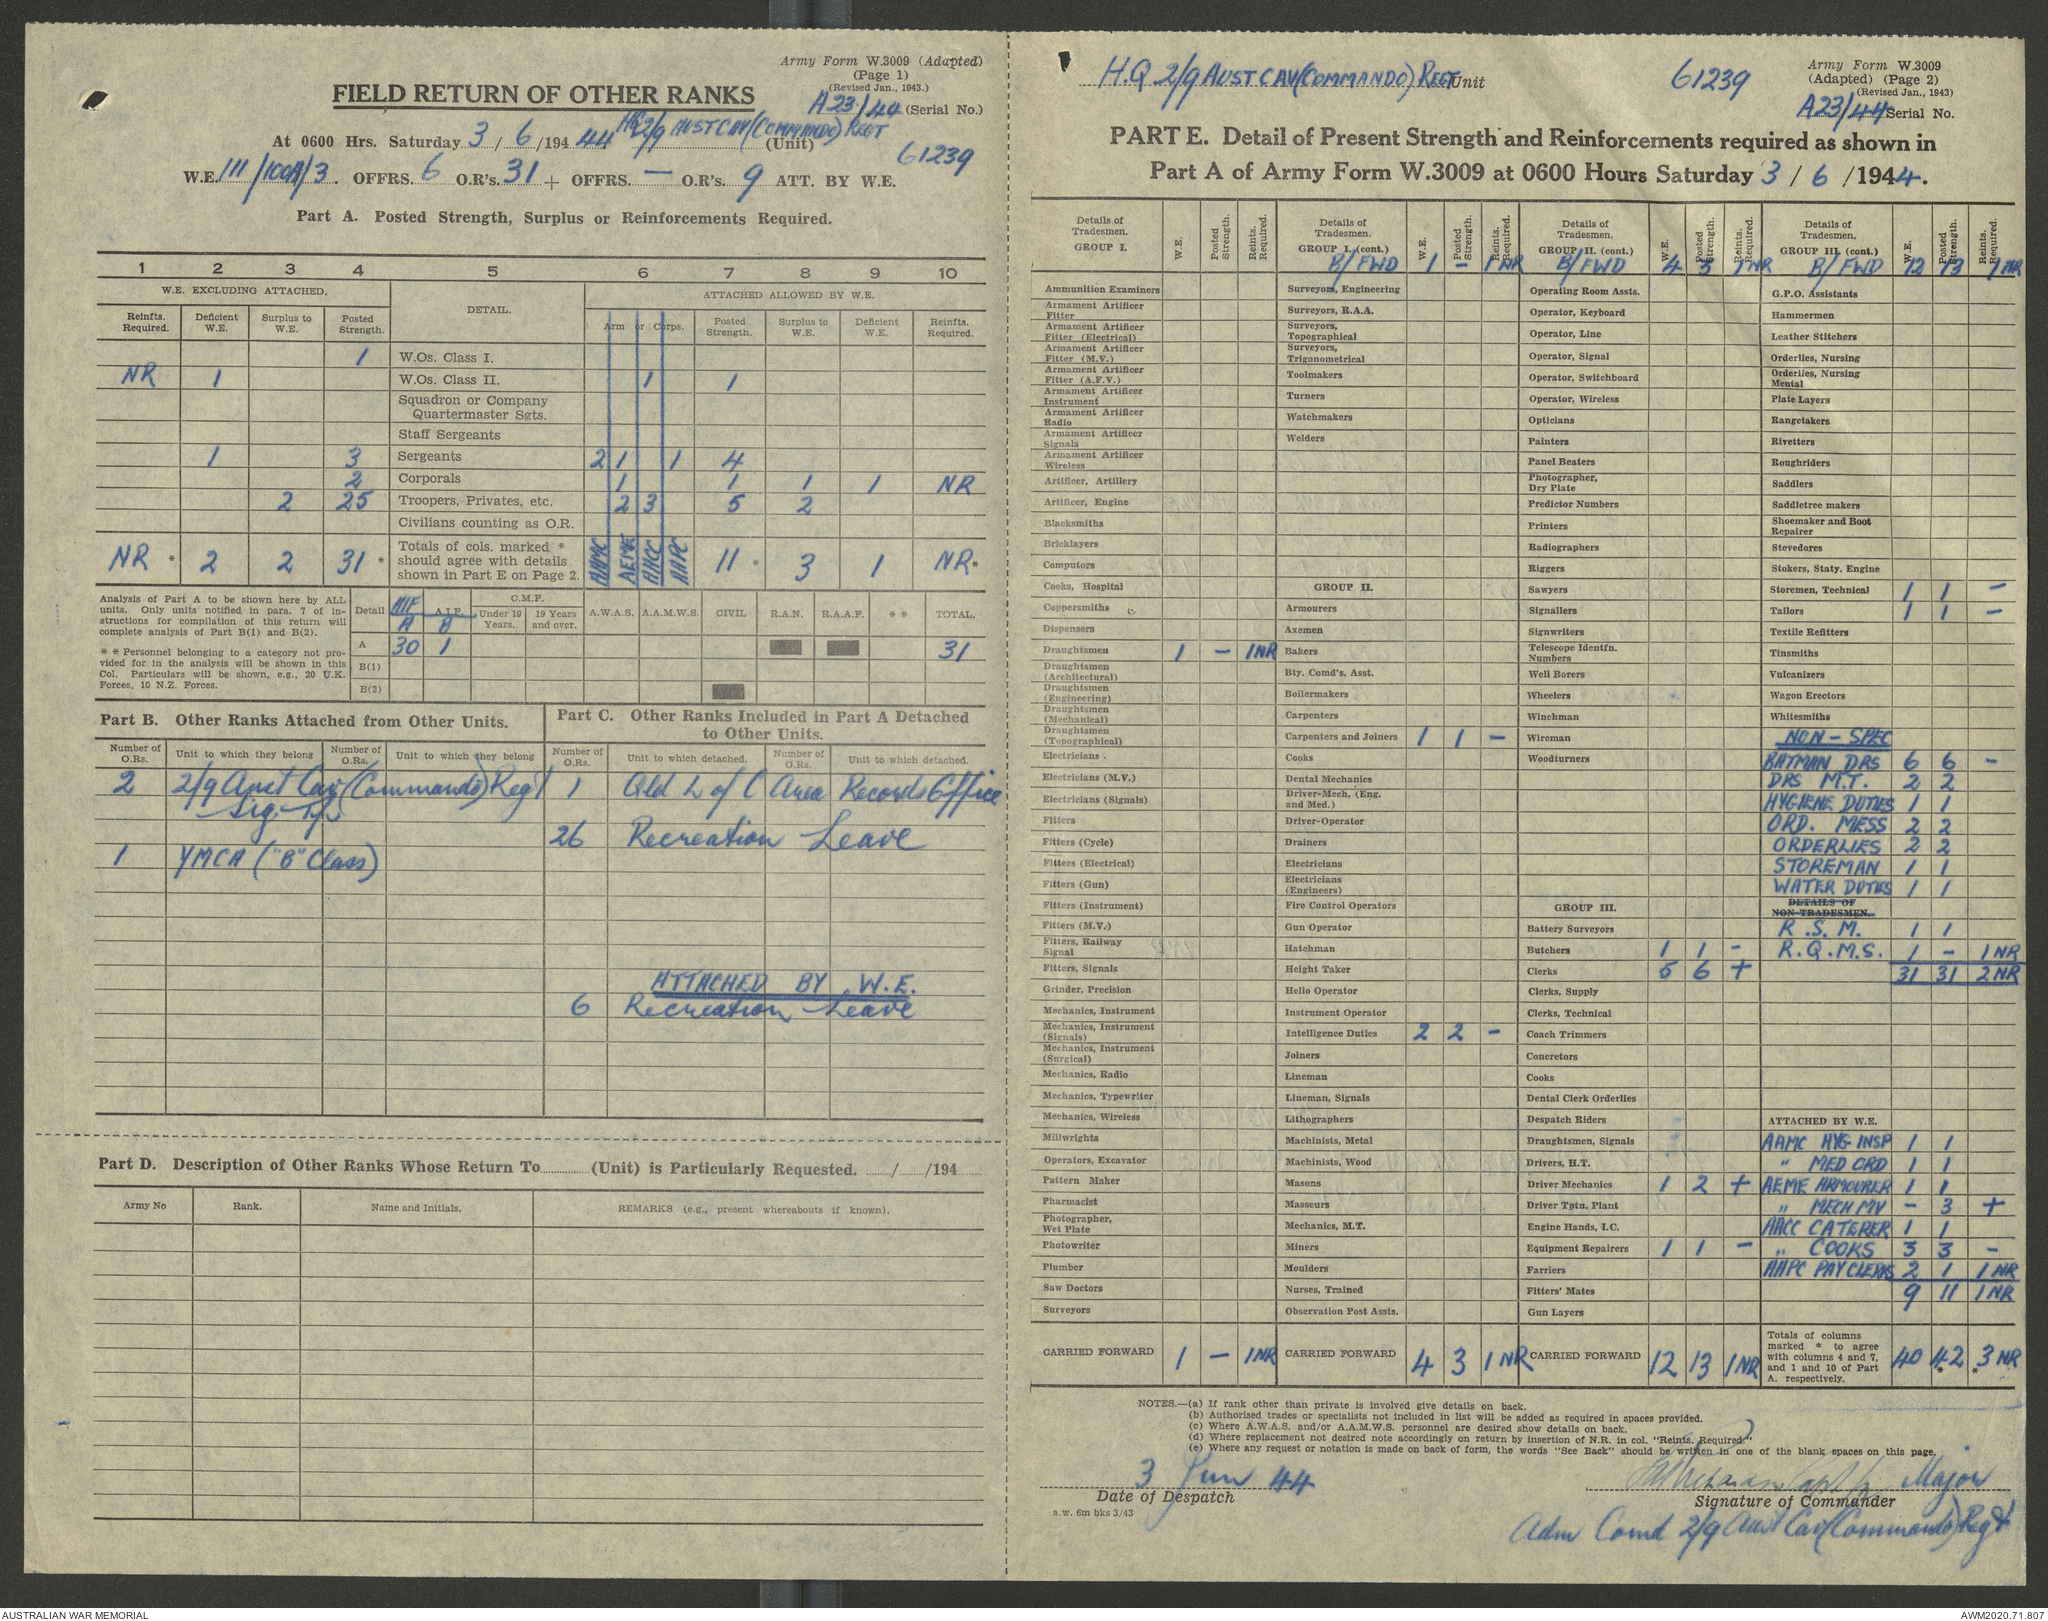 Army Form W.3009 (Adapted)
(Page 1)
(Revised Jan., 1943.)
FIELD RETURN OF OTHER RANKS
A23/44 (Serial No.)
At 0600 Hrs. Saturday 3 / 6 /194 44 HQ 2/9 AUST CAV (COMMANDO) REGT (Unit)
61239
W.E. 111/100A/3. OFFRS. 6 O.R's. 31 + OFFRS. — O.R's. 9 ATT. BY W.E.
Part A. Posted Strength, Surplus or Reinforcements Required.
1 2 3 4 5 6 7 8 9 10
W.E. EXCLUDING ATTACHED. DETAIL. ATTACHED ALLOWED BY W.E.
Reinfts. Required. Deficient W.E. Surplus to W.E. Posted Strength. Arm or Corps. Posted Strength. Surplus to W.E. Deficient W.E. Reinfts. Required.
1 W.Os. Class I.
NR 1 W.Os. Class II. 1 1
Squadron or Company Quartermaster Sgts.
Staff Sergeants
1 3 Sergeants 2 1 1 4
2 Corporals 1 1 1 1 NR
2 25 Troopers, Privates, etc. 2 3 5 2
Civilians counting as O.R.
NR * 2 2 31 * Totals of cols. marked * should agree with details shown in Part E on Page 2. AAMC AEME AACC AAPC 11 * 3 1 NR *
Analysis of Part A to be shown here by ALL units. Only units notified in para. 7 of instructions for compilation of this return will complete analysis of Part B(1) and B(2).
* * Personnel belonging to a category not provided for in the analysis will be shown in this Col. Particulars will be shown, e.g., 20 U.K. Forces, 10 N.Z. Forces.
Detail AIF A.I.F. C.M.F. Under 19 Years. 19 Years and over. A.W.A.S. A.A.M.W.S. CIVIL R.A.N. R.A.A.F. * * TOTAL.
A B
A 30 1 31
B(1)
B(2)
Part B. Other Ranks Attached from Other Units.
Part C. Other Ranks Included in Part A Detached to Other Units.
Number of O.Rs. Unit to which they belong Number of O.Rs. Unit to which they belong Number of O.Rs. Unit to which detached. Number of O.Rs. Unit to which detached.
2 2/9 Aust Cav (Commando) Regt 1 Qld L of C Area Records Office
Sig. Tp.
26 Recreation Leave
1 YMCA ("B" Class)
ATTACHED BY W.E.
6 Recreation Leave
Part D. Description of Other Ranks Whose Return To (Unit) is Particularly Requested. / /194
Army No Rank. Name and Initials. REMARKS (e.g., present whereabouts if known).
H.Q 2/9 AUST CAV (COMMANDO) REGT Unit 61239
Army Form W.3009
(Adapted) (Page 2)
(Revised Jan., 1943)
A23/44 Serial No.
PART E. Detail of Present Strength and Reinforcements required as shown in
Part A of Army Form W.3009 at 0600 Hours Saturday 3 / 6 /1944.
Details of Tradesmen. GROUP I. W.E. Posted Strength. Reints. Required.
Ammunition Examiners
Armament Artificer Fitter
Armament Artificer Fitter (Electrical)
Armament Artificer Fitter (M.V.)
Armament Artificer Fitter (A.F.V.)
Armament Artificer Instrument
Armament Artificer Radio
Armament Artificer Signals
Armament Artificer Wireless
Artificer, Artillery
Artificer, Engine
Blacksmiths
Bricklayers
Computors
Cooks, Hospital
Coppersmiths
Dispensers
Draughtsmen 1 – 1NR
Draughtsmen (Architectural)
Draughtsmen (Engineering)
Draughtsmen (Mechanical)
Draughtsmen (Topographical)
Electricians
Electricians (M.V.)
Electricians (Signals)
Fitters
Fitters (Cycle)
Fitters (Electrical)
Fitters (Gun)
Fitters (Instrument)
Fitters (M.V.)
Fitters, Railway Signal
Fitters, Signals
Grinder, Precision
Mechanics, Instrument
Mechanics, Instrument (Signals)
Mechanics, Instrument (Surgical)
Mechanics, Radio
Mechanics, Typewriter
Mechanics, Wireless
Millwrights
Operators, Excavator
Pattern Maker
Pharmacist
Photographer, Wet Plate
Photowriter
Plumber
Saw Doctors
Surveyors
CARRIED FORWARD 1 – 1NR
Details of Tradesmen. GROUP I. (cont.) W.E. Posted Strength. Reints. Required.
B/FWD 1 – 1 NR
Surveyors, Engineering
Surveyors, R.A.A.
Surveyors, Topographical
Surveyors, Trigonometrical
Toolmakers
Turners
Watchmakers
Welders
GROUP II.
Armourers
Axemen
Bakers
Bty. Comd's. Asst.
Boilermakers
Carpenters
Carpenters and Joiners 1 1 –
Cooks
Dental Mechanics
Driver-Mech. (Eng. and Med.)
Driver-Operator
Drainers
Electricians
Electricians (Engineers)
Fire Control Operators
Gun Operator
Hatchman
Height Taker
Helio Operator
Instrument Operator
Intelligence Duties 2 2 –
Joiners
Lineman
Lineman, Signals
Lithographers
Machinists, Metal
Machinists, Wood
Masons
Masseurs
Mechanics, M.T.
Miners
Moulders
Nurses, Trained
Observation Post Assts.
CARRIED FORWARD 4 3 1 NR
Details of Tradesmen. GROUP II. (cont.) W.E. Posted Strength. Reints. Required.
B/FWD 4 3 1 NR
Operating Room Assts.
Operator, Keyboard
Operator, Line
Operator, Signal
Operator, Switchboard
Operator, Wireless
Opticians
Painters
Panel Beaters
Photographer, Dry Plate
Predictor Numbers
Printers
Radiographers
Riggers
Sawyers
Signallers
Signwriters
Telescope Identfn. Numbers
Well Borers
Wheelers
Winchman
Wireman
Woodturners
GROUP III.
Battery Surveyors
Butchers 1 1 –
Clerks 5 6 +
Clerks, Supply
Clerks, Technical
Coach Trimmers
Concretors
Cooks
Dental Clerk Orderlies
Despatch Riders
Draughtsmen, Signals
Drivers, H.T.
Driver Mechanics 1 2 +
Driver Tptn. Plant
Engine Hands, I.C.
Equipment Repairers 1 1 –
Farriers
Fitters' Mates
Gun Layers
CARRIED FORWARD 12 13 1 NR
Details of Tradesmen. GROUP III. (cont.) W.E. Posted Strength. Reints. Required.
B/FWD 12 13 1 NR
G.P.O. Assistants
Hammermen
Leather Stitchers
Orderlies, Nursing
Orderlies, Nursing Mental
Plate Layers
Rangetakers
Rivetters
Roughriders
Saddlers
Saddletree makers
Shoemaker and Boot Repairer
Stevedores
Stokers, Staty. Engine
Storemen, Technical 1 1 –
Tailors 1 1 –
Textile Refitters
Tinsmiths
Vulcanizers
Wagon Erectors
Whitesmiths
NON – SPEC
BATMAN DRS 6 6 –
DRS M.T. 2 2
HYGIENE DUTIES 1 1
ORD. MESS 2 2
ORDERLIES 2 2
STOREMAN 1 1
WATER DUTIES 1 1
DETAILS OF NON-TRADESMEN.
R.S.M. 1 1
R.Q.M.S. 1 – 1 NR
31 31 2 NR
ATTACHED BY W.E.
AAMC HYG INSP 1 1
" MED ORD 1 1
AEME ARMOURER 1 1
" MECH MV – 3 +
AACC CATERER 1 1
" COOKS 3 3 –
AAPC PAY CLERKS 2 1 1 NR
9 11 1 NR
Totals of columns marked * to agree with columns 4 and 7, and 1 and 10 of Part A. respectively. 40 42 * 3 NR *
NOTES.—(a) If rank other than private is involved give details on back.
(b) Authorised trades or specialists not included in list will be added as required in spaces provided.
(c) Where A.W.A.S. and/or A.A.M.W.S. personnel are desired show details on back.
(d) Where replacement not desired note accordingly on return by insertion of N.R. in col. "Reints. Required."
(e) Where any request or notation is made on back of form, the words "See Back" should be written in one of the blank spaces on this page.
3 Jun 44
Date of Despatch
a.w. 6m bks 3/43
Capt for Major
Signature of Commander
Adm Comd 2/9 Aust Cav (Commando) Regt
AUSTRALIAN WAR MEMORIAL
AWM2020.71.807